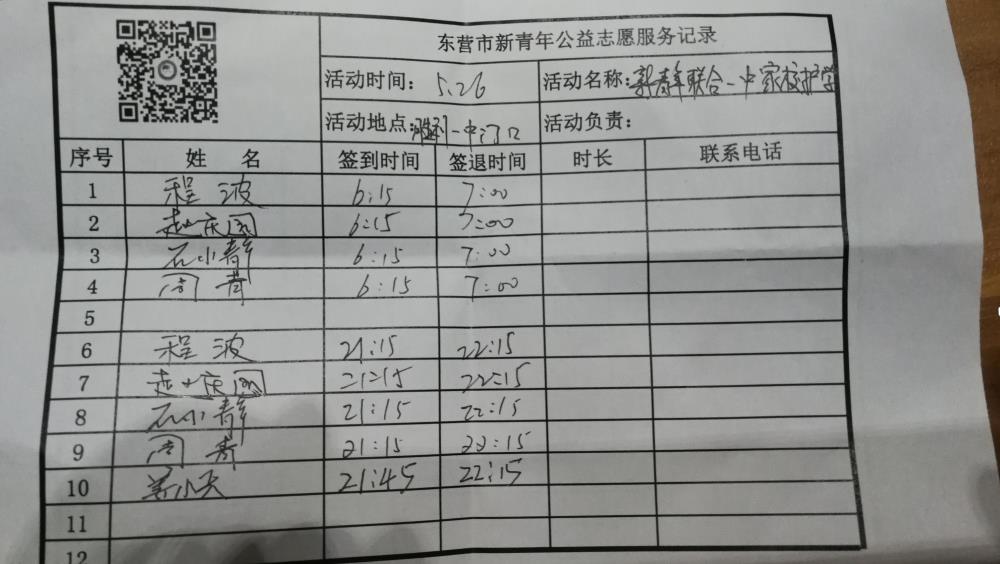 东营市新青年公益志愿服务记录
活动时间： 5.26 活动名称：新青年联合一中家校护学
活动地点：胜利一中门口 活动负责：
序号 姓 名 签到时间 签退时间 时长 联系电话
1 程波 6:15 7:00
2 赵庆国 6:15 7:00
3 石小静 6:15 7:00
4 周青 6:15 7:00
5
6 程波 21:15 22:15
7 赵庆国 21:15 22:15
8 石小静 21:15 22:15
9 周青 21:15 22:15
10 姜小天 21:45 22:15
11
12